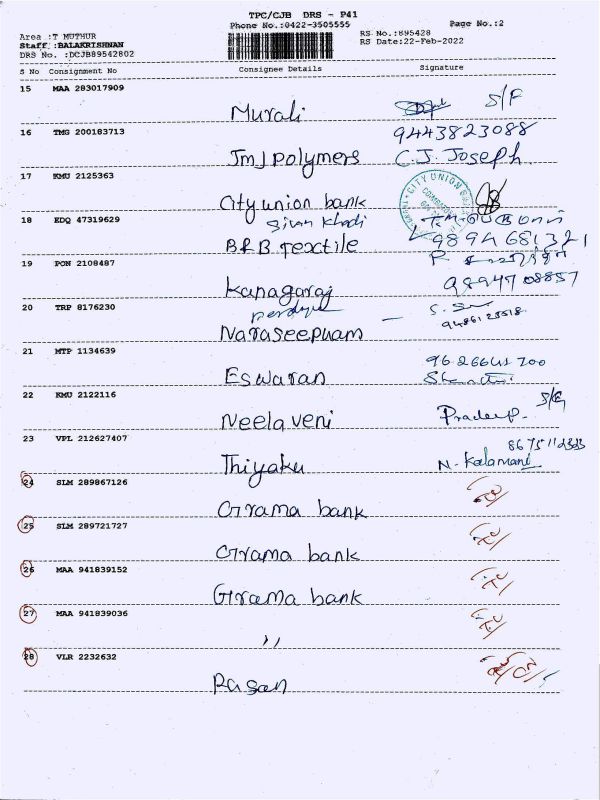 TPC/CJB DRS - P41
Phone No.:0422-3505555 Page No.:2
Area :T MUTHUR RS No.:895428
Staff :BALAKRISHNAN RS Date:22-Feb-2022
DRS No. :DCJB89542802
S No Consignment No Consignee Details Signature
15 MAA 283017909
Murali S/F
16 TMG 200183713 9443823088
JmJ polymers C.J. Joseph
17 KMU 2125363
City union bank CITY UNION
18 EDQ 47319629
B.R.B Textile 9894681321
19 PON 2108487
Kanagaraj 9894708857
20 TRP 8176230
Naraseepuam
21 MTP 1134639
Eswaran
22 KMU 2122116
Neelaveni Pradeep.
23 VPL 212627407
Thiyaku N. Kalamani
24 SLM 289867126
Grama bank
25 SLM 289721727
Grama bank
26 MAA 941839152
Grama bank
27 MAA 941839036
,,
28 VLR 2232632
Rasan